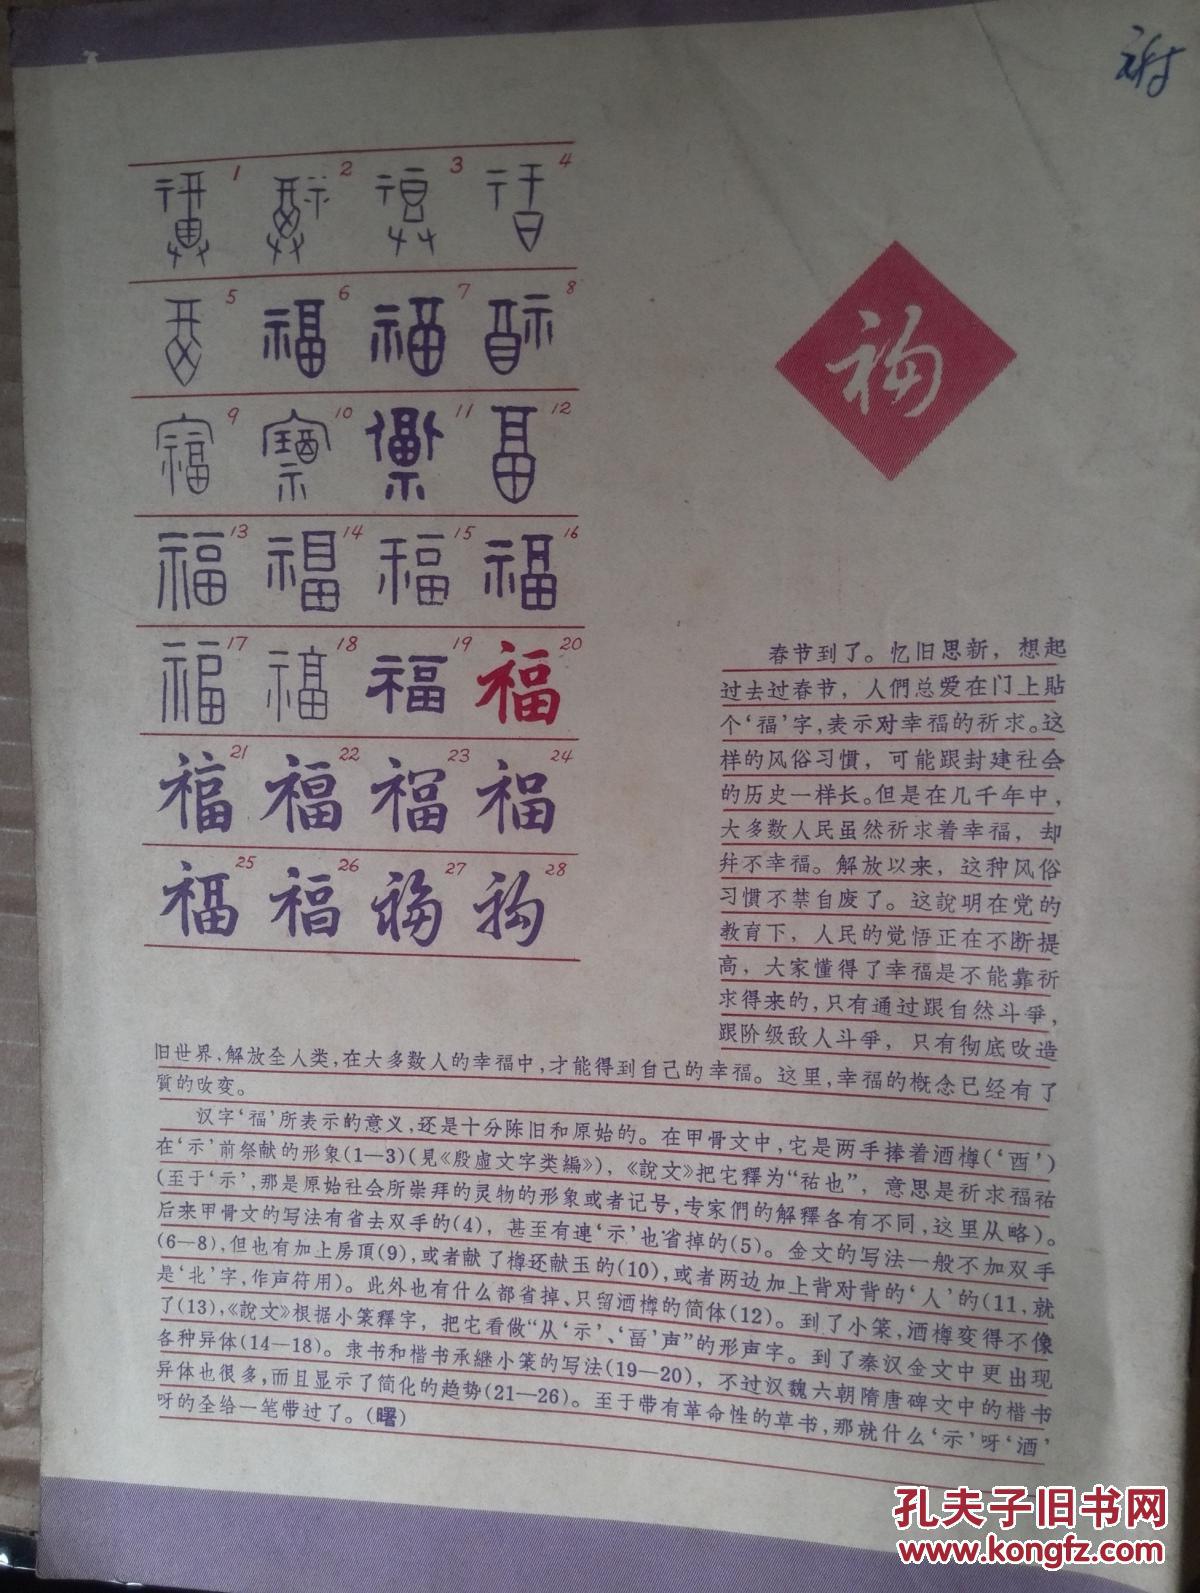 谢
1 2 3 4
5 福 6 福 7 8
9 10 11 12
福 13 福 14 福 15 福 16
福 17 福 18 福 19 福 20
福 21 福 22 福 23 福 24
福 25 福 26 福 27 福 28
福
春节到了。忆旧思新，想起
过去过春节，人們总爱在门上貼
个‘福’字，表示对幸福的祈求。这
样的风俗习慣，可能跟封建社会
的历史一样长。但是在几千年中，
大多数人民虽然祈求着幸福，却
幷不幸福。解放以来，这种风俗
习慣不禁自废了。这說明在党的
教育下，人民的觉悟正在不断提
高，大家懂得了幸福是不能靠祈
求得来的，只有通过跟自然斗爭，
跟阶级敌人斗爭，只有彻底改造
旧世界，解放全人类，在大多数人的幸福中，才能得到自己的幸福。这里，幸福的槪念已经有了
質的改变。
汉字‘福’所表示的意义，还是十分陈旧和原始的。在甲骨文中，它是两手捧着酒樽(‘酉’)
在‘示’前祭献的形象(1—3)(見《殷虛文字类編》)，《說文》把它釋为“祐也”，意思是祈求福祐
(至于‘示’，那是原始社会所崇拜的灵物的形象或者记号，专家們的解釋各有不同，这里从略)。
后来甲骨文的写法有省去双手的(4)，甚至有連‘示’也省掉的(5)。金文的写法一般不加双手
(6—8)，但也有加上房頂(9)，或者献了樽还献玉的(10)，或者两边加上背对背的‘人’的(11，就
是‘北’字，作声符用)。此外也有什么都省掉、只留酒樽的简体(12)。到了小篆，酒樽变得不像
了(13)，《說文》根据小篆釋字，把它看做“从‘示’、‘畐’声”的形声字。到了秦汉金文中更出现
各种异体(14—18)。隶书和楷书承継小篆的写法(19—20)，不过汉魏六朝隋唐碑文中的楷书
异体也很多，而且显示了简化的趋势(21—26)。至于带有革命性的草书，那就什么‘示’呀‘酒’
呀的全给一笔带过了。(曙)
孔夫子旧书网
www.kongfz.com